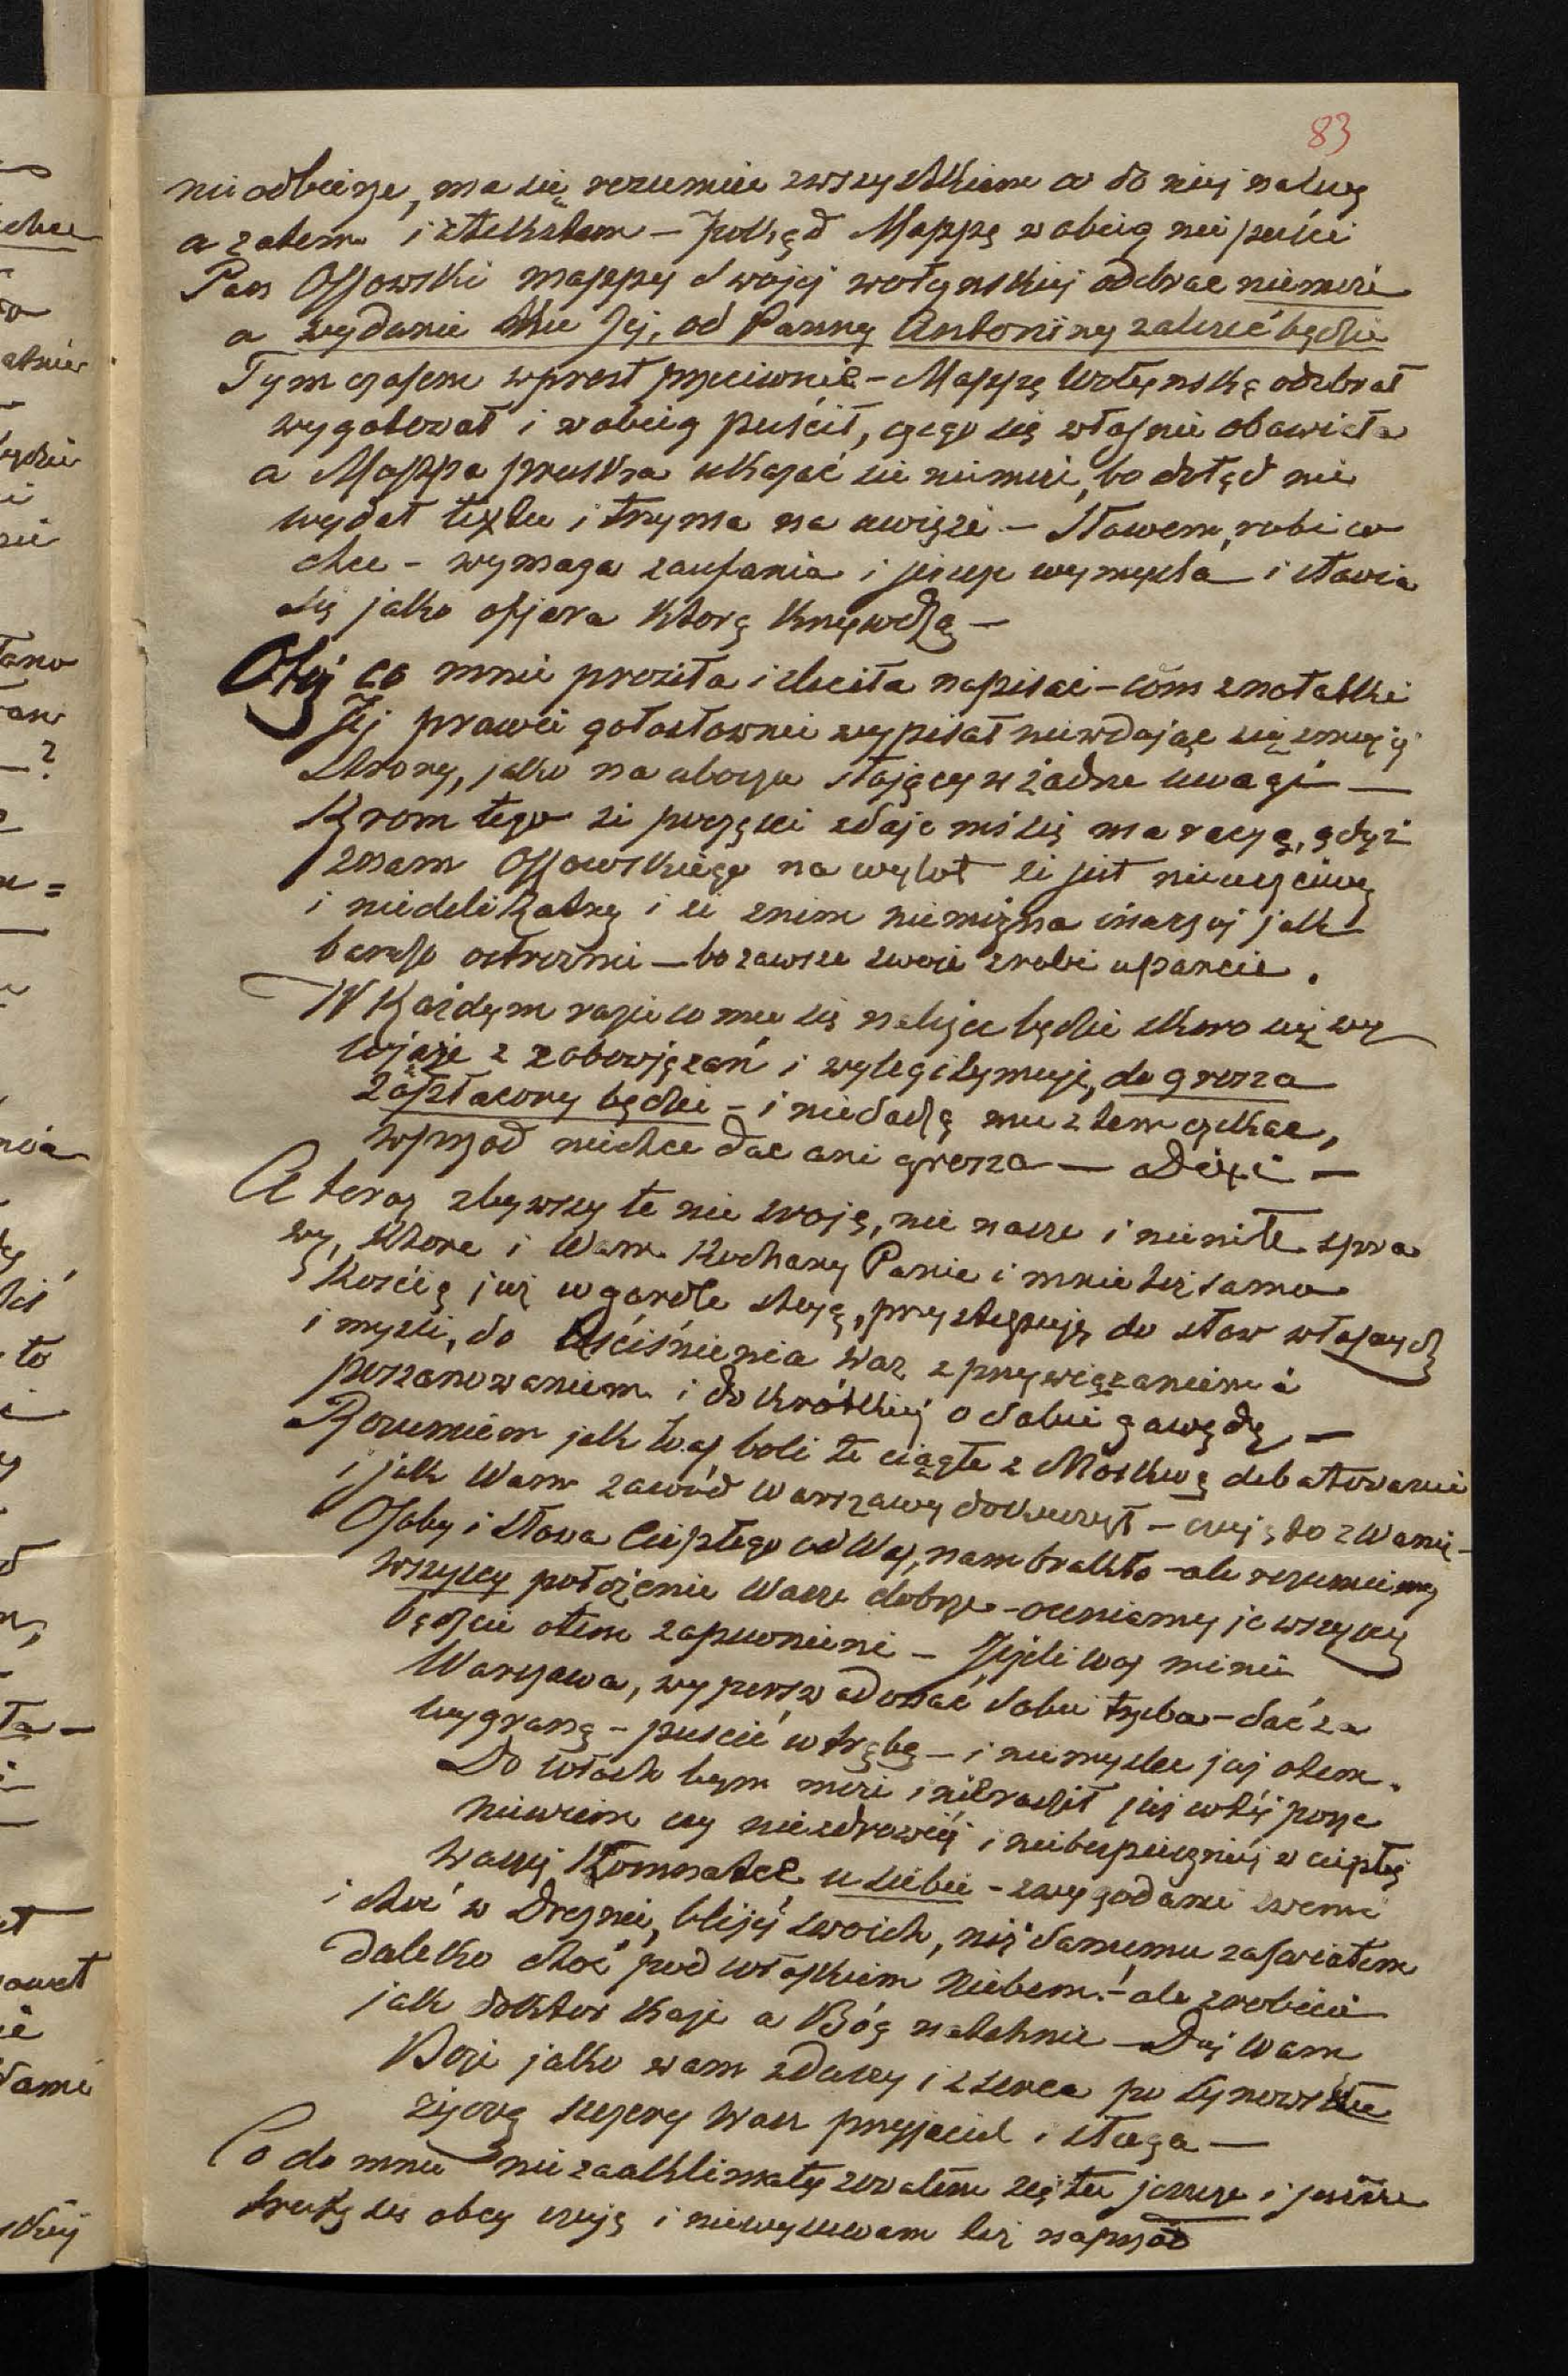 83
nie odbierze, ma się rozumieć z wszystkiem co do niej należy
a zatem i z tekstem – pokąd Mappę w obieg nie puści
Pan Ossowski mappy swojej wołynskiej odebrac niemoże
a wydanie tku Jej, od Panny Antoniny zależeć będzie
Tym czasem wprost przeciwnie – Mappę Wołynską odebrał
wygotował i w obieg puścił, czego się własnie obawiała
a Mappa pruska ukazać sie niemoże, bo dotąd nie
wydał textu i trzyma na uwięzi – Słowem, robi co
chce – wymaga zaufania i jeszcze wymyśla i stawia
się jako ofjara którą krzywdzą –
Otoj co mnie prosiła i zleciła napisac – com z notatki
Jej prawie gołosłownie wypisał niewdając się z mojej
strony, jako na uboczu stojący w żadne uwagi —
Krom tego że poczęsci zdaje mi się ma racyą, gdyż
znam Ossowskiego na wylot że jest nieuczciwy
i niedelikatny i że z nim niemożna inaczej jak
bardzo ostrożnie – bo zawsze swoje zrobi uparcie.
W Każdym razie co mu się należec będzie skoro się wy
wjąże z zobowjązań i wylegitymuje, do grosza
zapłacony będzie – i niedadzą mu z tem czekac,
wprzod niechce dac ani grosza — Dixi —
A teraz zbywszy te nie swoje, nie nasze i niemiłe spra
wy, które i Wam Kochany Panie i mnie też samo
Kością już w gardle stoją, przystępuję do słow własnych
i mysli, do Uściśnienia Was z przywiązaniem i
poszanowaniem i do krótkiej o sobie gawędy —
Rozumiem jak Was boli te ciągłe z Moskwą debatowanie
i jak Wam zawód Warszawy dokuczył – czuję to z Wami –
Osoby i słowa Ciepłego od Was, nam brakło – ale rozumiemy
wszyscy położenie Wasze dobrze – oceniamy je wszyscy
bądzcie otem zapewnieni – Jeżeli Was minie
Warszawa, wyperswadować sobie trzeba – dać za
wygraną – puscić w trąbę – i niemyslec już otem.
Do Włoch bym może i nieradził już w tej porze
niewiem czy niezdrowiej i niebezpieczniej w ciepłej
waszej Komnatce u siebie – z wygodami swemi
i choć w Dreznie, bliżej swoich, niż samemu zaswiatem
daleko choć pod włoskiem Niebem! – ale zrobicie
jak doktor każe a Bóg natchnie – Daj Wam
Boże jako wam zdawey i z serca po synowsku
życzą szczery Wasz przyjaciel i sługa —
Co do mnie nie zaaklimatyzowałem się tu jeszcze i jeszcze
trochę się obcy czuję i niewysuwam też naprzód